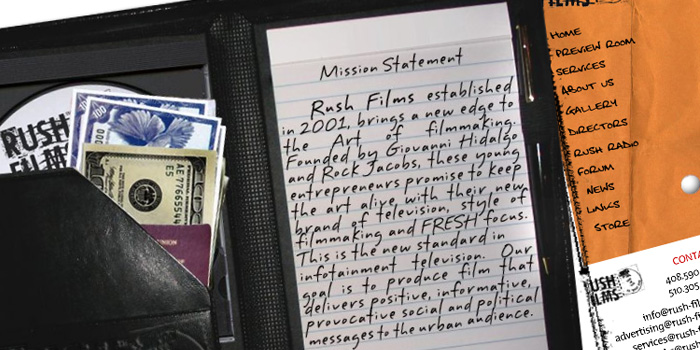 RUSH
FILMS
100
000
AE77665544
E5
Mission Statement
Rush Films established
in 2001, brings a new edge to
the Art of filmmaking.
Founded by Giovanni Hidalgo
and Rock Jacobs, these young
entrepreneurs promise to keep
the art alive with their new
brand of television, style of
filmmaking and FRESH focus.
This is the new standard in
infotainment television. Our
goal is to produce film that
delivers positive, informative,
provocative social and political
messages to the urban audience.
FILMS
HOME
PREVIEW ROOM
SERVICES
ABOUT US
GALLERY
DIRECTORS
RUSH RADIO
FORUM
NEWS
LINKS
STORE
RUSH
FILMS
CONTA
408.590
510.305
info@rush-fil
advertising@rush-f
services@rush-